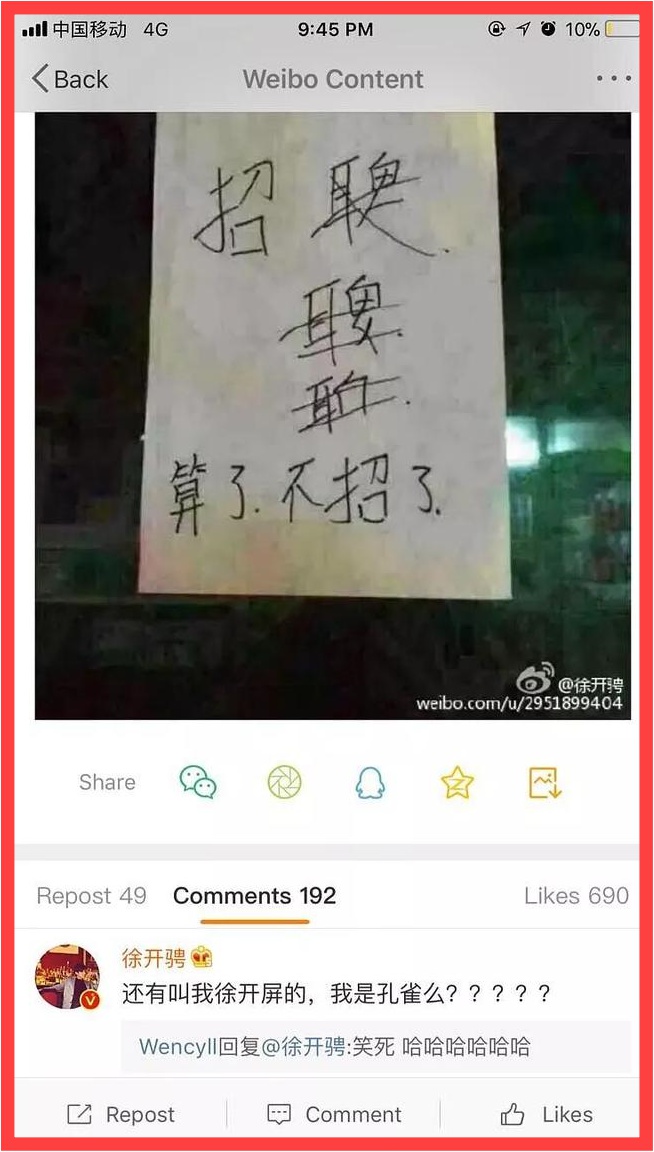 中国移动 4G 9:45 PM 10%
Back Weibo Content
招聘
算了.不招了.
@徐开骋
weibo.com/u/2951899404
Share
Repost 49 Comments 192 Likes 690
徐开骋
还有叫我徐开屏的，我是孔雀么？？？？？
Wencyll回复@徐开骋:笑死 哈哈哈哈哈哈
Repost Comment Likes